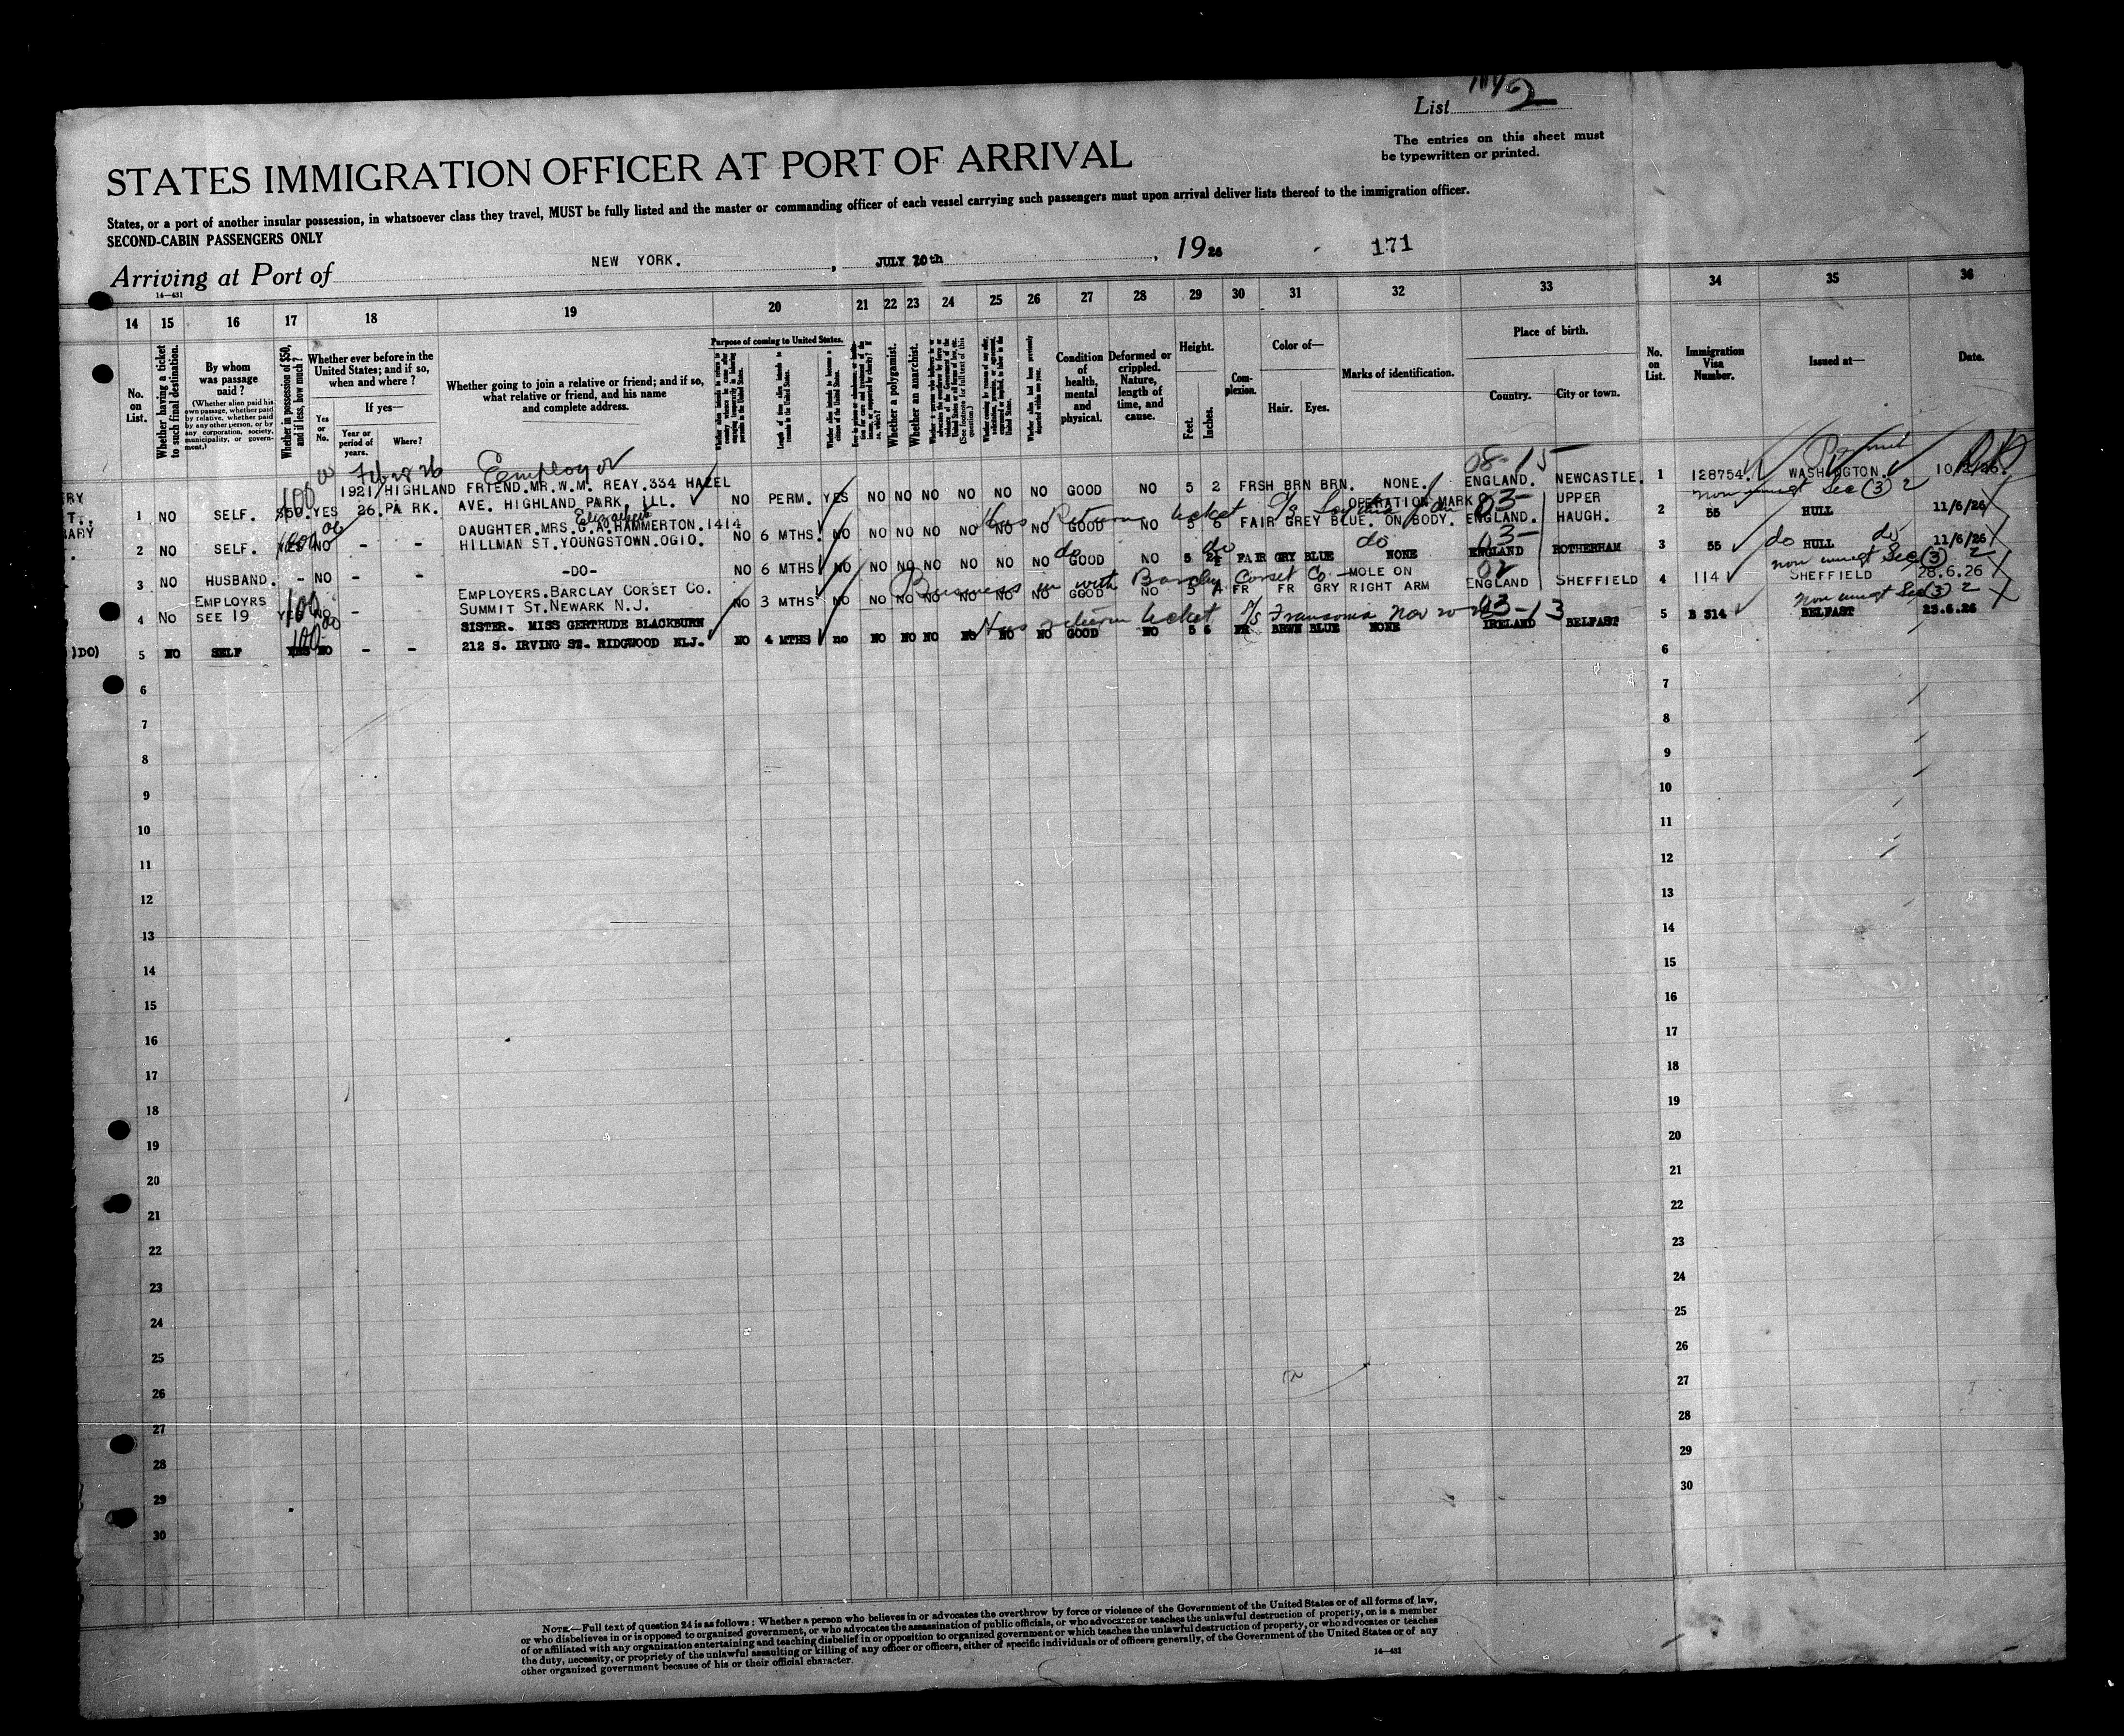 List 2
The entries on this sheet must
be typewritten or printed.
STATES IMMIGRATION OFFICER AT PORT OF ARRIVAL
States, or a port of another insular possession, in whatsoever class they travel, MUST be fully listed and the master or commanding officer of each vessel carrying such passengers must upon arrival deliver lists thereof to the immigration officer.
SECOND-CABIN PASSENGERS ONLY
Arriving at Port of NEW YORK. , JULY 20th , 1926 171
14—431
14 15 16 17 18 19 20 21 22 23 24 25 26 27 28 29 30 31 32 33 34 35 36
No. on List.
Whether having a ticket to such final destination.
By whom was passage paid?
(Whether alien paid his own passage, whether paid by relative, whether paid by any other person, or by any corporation, society, municipality, or government.)
Whether in possession of $50, and if less, how much?
Whether ever before in the United States; and if so, when and where?
Yes or No.
If yes—
Year or period of years.
Where?
Whether going to join a relative or friend; and if so, what relative or friend, and his name and complete address.
Purpose of coming to United States.
Length of time alien intends to remain in the United States.
Whether alien intends to become a citizen of the United States.
Whether a polygamist.
Whether an anarchist.
(See footnote for full text of this question.)
Condition of health, mental and physical.
Deformed or crippled. Nature, length of time, and cause.
Height.
Feet. Inches.
Complexion.
Color of—
Hair. Eyes.
Marks of identification.
Place of birth.
Country. City or town.
No. on List.
Immigration Visa Number.
Issued at—
Date.
Feb 28 26 Employer 08-15 Permit
1921/ HIGHLAND FRIEND.MR.W.M. REAY.334 HAZEL
1 NO SELF. $50. 100 YES 26. PA RK. AVE. HIGHLAND PARK, ILL. NO PERM. YES NO NO NO NO NO NO GOOD NO 5 2 FRSH BRN BRN. NONE. ENGLAND. NEWCASTLE. 1 128754 WASHINGTON.
Elizabeth
DAUGHTER.MRS.G.A.HAMMERTON.1414 Has Return ticket OPERATION MARK 03- UPPER non immgt Sec (3) 2
2 NO SELF. YES NO - - HILLMAN ST.YOUNGSTOWN.OGIO. NO 6 MTHS. NO NO NO NO NO NO NO GOOD NO 5 FAIR GREY BLUE. ON BODY. ENGLAND. HAUGH. 2 55 HULL 11/6/26
do do do 03- do do
3 NO HUSBAND. - NO - - -DO- NO 6 MTHS NO NO NO NO NO NO NO GOOD NO 5 2½ FAIR GRY BLUE NONE ENGLAND ROTHERHAM 3 55 HULL 11/6/26
EMPLOYRS EMPLOYERS.BARCLAY CORSET CO. Business with Barclay Corset Co. MOLE ON 02 non immgt Sec (3) 2
4 NO SEE 19 YES 100 NO - SUMMIT ST.NEWARK N.J. NO 3 MTHS NO NO NO NO NO NO NO GOOD NO 5 FR FR GRY RIGHT ARM ENGLAND SHEFFIELD 4 114 SHEFFIELD 28.6.26
SISTER. MISS GERTRUDE BLACKBURN Has return ticket S/S Franconia Nov 20 03-13 non immgt Sec (3) 2
)DO) 5 NO SELF YES 100 NO - - 212 S. IRVING ST. RIDGWOOD NLJ. NO 4 MTHS no NO NO NO NO NO NO GOOD NO 5 6 FR BRWN BLUE NONE IRELAND BELFAST 5 B 314 BELFAST 23.6.26
6 6
7 7
8 8
9 9
10 10
11 11
12 12
13 13
14 14
15 15
16 16
17 17
18 18
19 19
20 20
21 21
22 22
23 23
24 24
25 25
26 26
27 27
28 28
29 29
30 30
NOTE.—Full text of question 24 is as follows: Whether a person who believes in or advocates the overthrow by force or violence of the Government of the United States or of all forms of law,
or who disbelieves in or is opposed to organized government, or who advocates the assassination of public officials, or who advocates or teaches the unlawful destruction of property, or is a member
of or affiliated with any organization entertaining and teaching disbelief in or opposition to organized government or which teaches the unlawful destruction of property, or who advocates or teaches
the duty, necessity, or propriety of the unlawful assaulting or killing of any officer or officers, either of specific individuals or of officers generally, of the Government of the United States or of any
other organized government because of his or their official character.
14—431